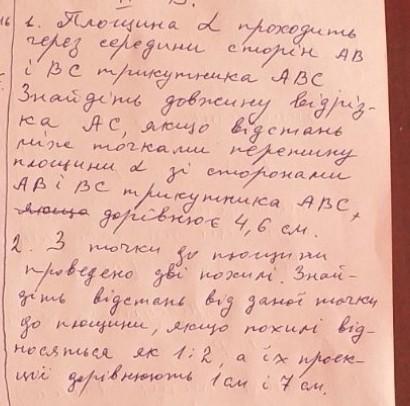 1. Площина α проходить
через середини сторін АВ
і ВС трикутника АВС
Знайдіть довжину відріз-
ка АС, якщо відстань
між точками перетину
площини α зі сторонами
АВ і ВС трикутника АВС,
дорівнює 4,6 см.
2. З точки до площини
проведено дві похилі. Знай-
діть відстань від даної точки
до площини, якщо похилі від-
носяться як 1:2, а їх проек-
ції дорівнюють 1 см і 7 см.